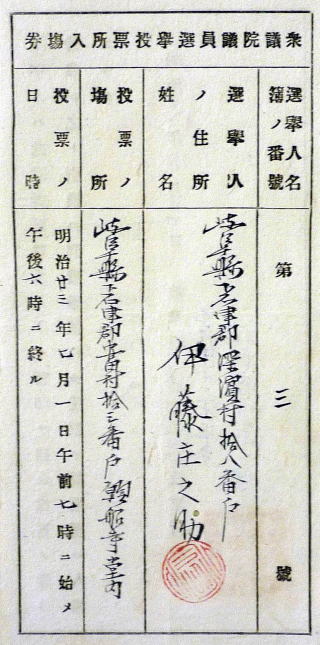 衆議院議員選擧投票所入場券
選擧人名
簿ノ番號
第三號
選擧人
ノ住所
姓名
岐阜縣下石津郡深濱村拾八番戸
伊藤庄之助
投票ノ
場所
岐阜縣下石津郡安田村拾三番戸 願船寺堂内
投票ノ
日時
明治廿三年七月一日午前七時ニ始メ
午後六時ニ終ル